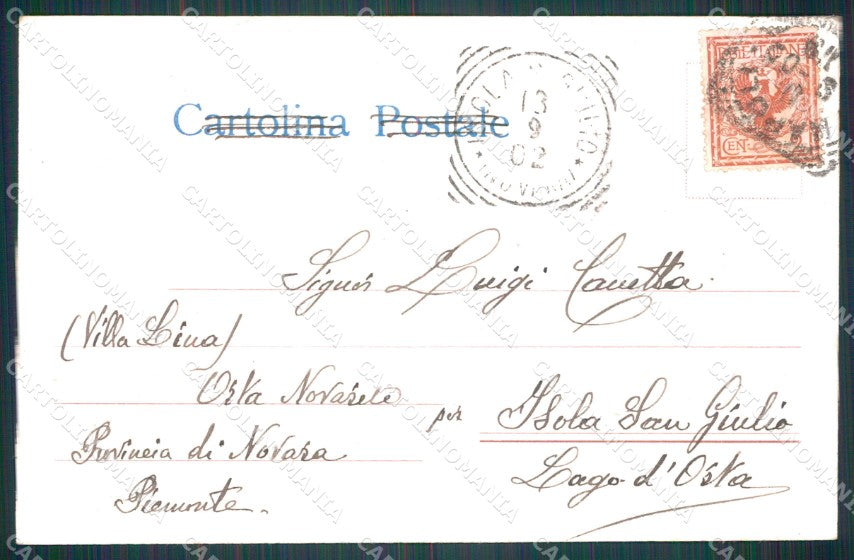 Cartolina Postale
13
9
02
Signor Luigi Canetta
(Villa Lina)
Orta Novarese
per Isola San Giulio
Provincia di Novara
Lago d'Orta
Piemonte.
CARTOLINOMANIA